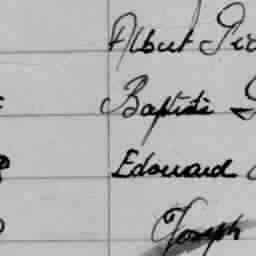 Albert
Baptiste
Edouard
Joseph